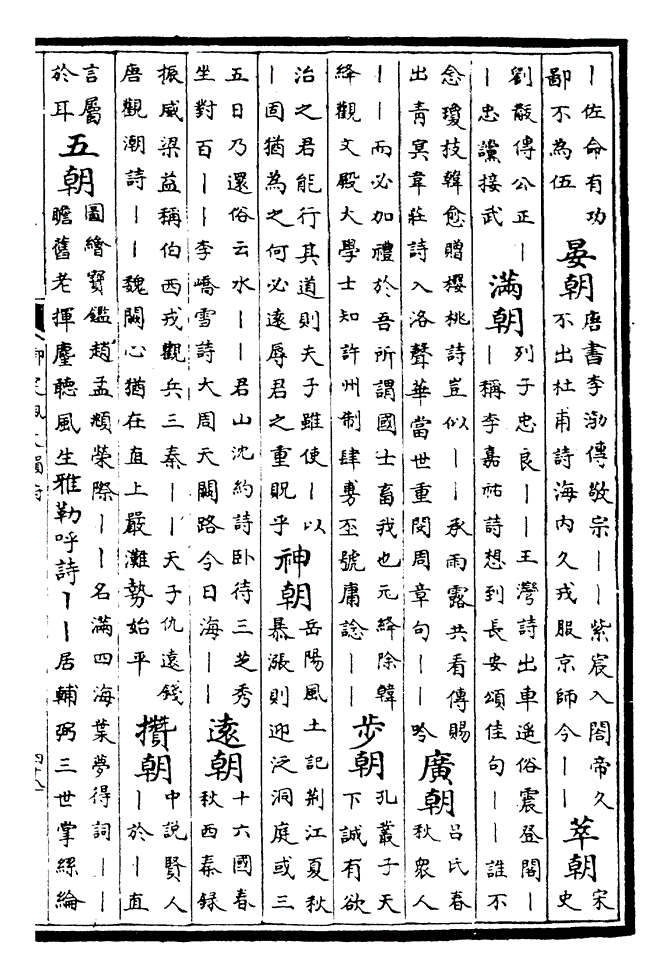 ｜佐命有功
鄙不為伍
晏朝
唐書李渤傳敬宗｜｜紫宸入閤帝久
不出杜甫詩海內久戎服京師今｜｜
萃朝
宋
史
劉瞉傳公正｜
｜忠讜接武
滿朝
列子忠良｜｜王灣詩出車遥俗震登閣｜
｜稱李嘉祐詩想到長安頌佳句｜｜誰不
念瓊枝韓愈贈櫻桃詩豈似｜｜承雨露共看傳賜
出青冥韋莊詩入洛聲華當世重閔周章句｜｜吟
廣朝
吕氏春
秋衆人
｜｜而必加禮於吾所謂國士畜我也元絳除韓
絳觀文殿大學士知許州制肆旉丕號庸諗｜｜
步朝
孔叢子天
下誠有欲
治之君能行其道則夫子雖使｜以
｜固猶為之何必遠辱君之重貺乎
神朝
岳陽風土記荆江夏秋
暴漲則迎泛洞庭或三
五日乃還俗云水｜｜君山沈約詩卧待三芝秀
坐對百｜｜李嶠雪詩大周天闕路今日海｜｜
遠朝
十六國春
秋西秦録
振威梁益稱伯西戎觀兵三秦｜｜天子仇遠錢
唐觀潮詩｜｜魏闕心猶在直上嚴灘勢始平
攢朝
中説賢人
｜於｜直
言屬
於耳
五朝
圖繪寶鑑趙孟頫榮際｜｜名滿四海葉夢得詞｜｜
瞻舊老揮麈聽風生雅勒呼詩｜｜居輔弼三世掌絲綸